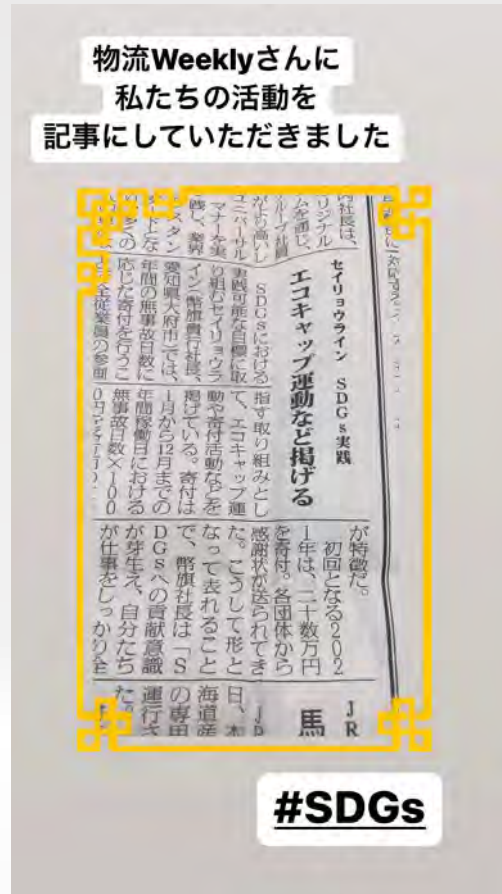 物流Weeklyさんに
私たちの活動を
記事にしていただきました
セイリョウライン SDGs実践
エコキャップ運動など掲げる
SDGsにおける
実践可能な目標に取
り組むセイリョウラ
イン(幣旗貴行社長、
愛知県大府市)では、
年間の無事故日数に
応じた寄付を行うこ
全従業員の参画
指す取り組みとし
て、エコキャップ運
動や寄付活動などを
掲げている。寄付は
1月から12月までの
年間稼働日における
無事故日数×100
が特徴だ。
初回となる202
1年は、二十数万円
を寄付。各団体から
感謝状が送られてき
た。こうして形と
なって表れること
で、幣旗社長は「S
DGsへの貢献意識
が芽生え、自分たち
が仕事をしっかり全
内社長は、
リジナル
ムを通じ、
ループ社員
がより高いレ
ユニバーサル
マナーを実
践し、業界
JR
馬
JR
日、本
海道産
の専用
運行さ
た。
#SDGs